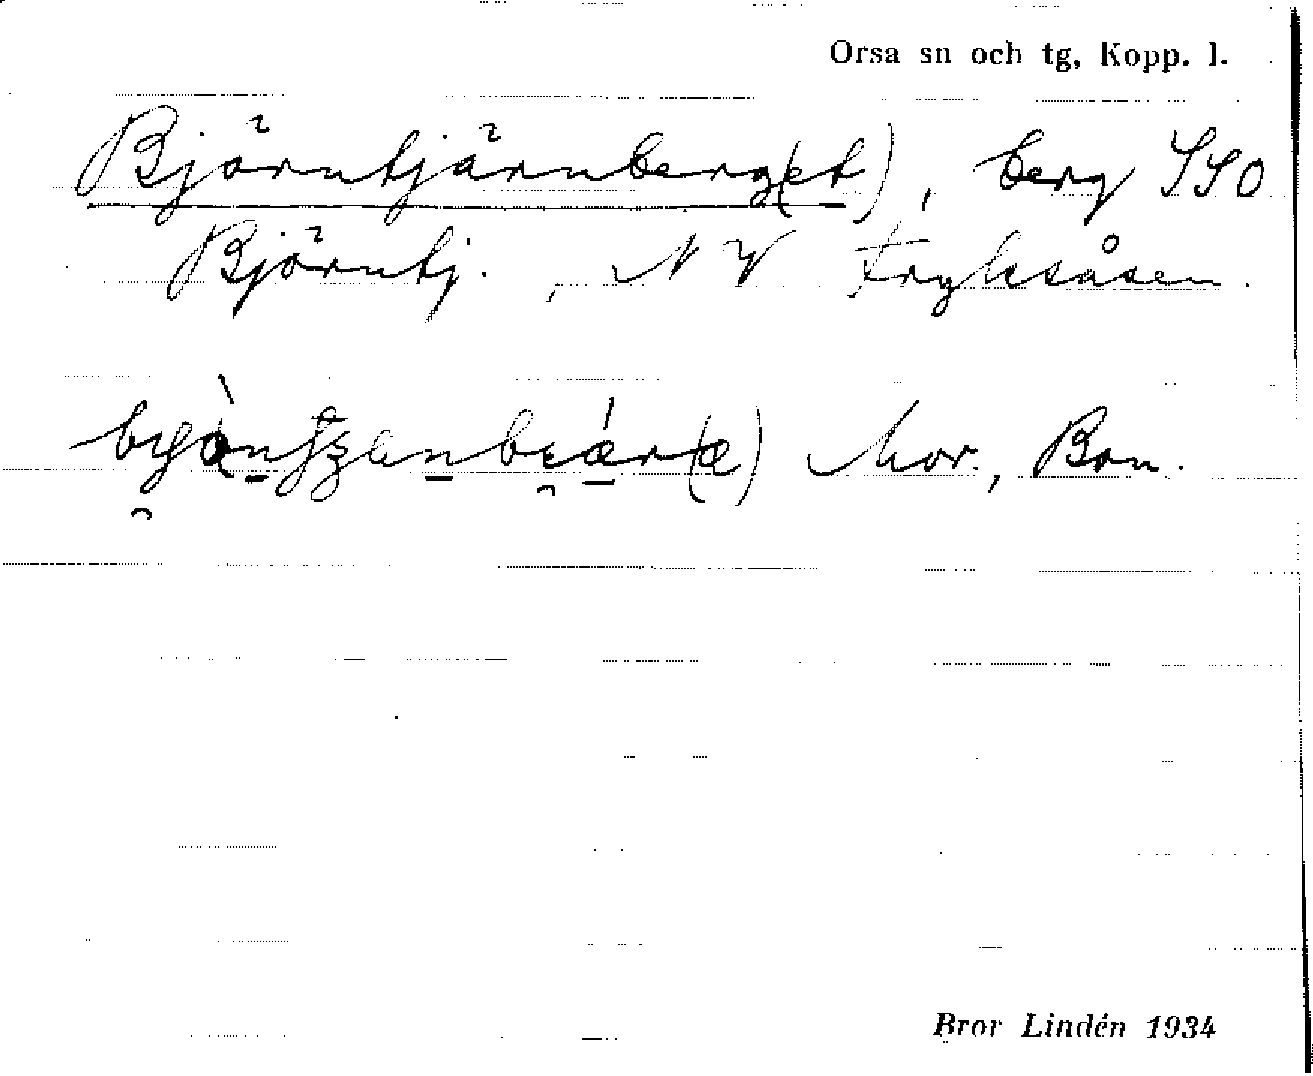 Orsa sn och tg, Kopp. l.
Björntjärnberg(et), berg SSO
Björntj., NV Fryksåsen.
Mor., Bon.
Bror Lindén 1934